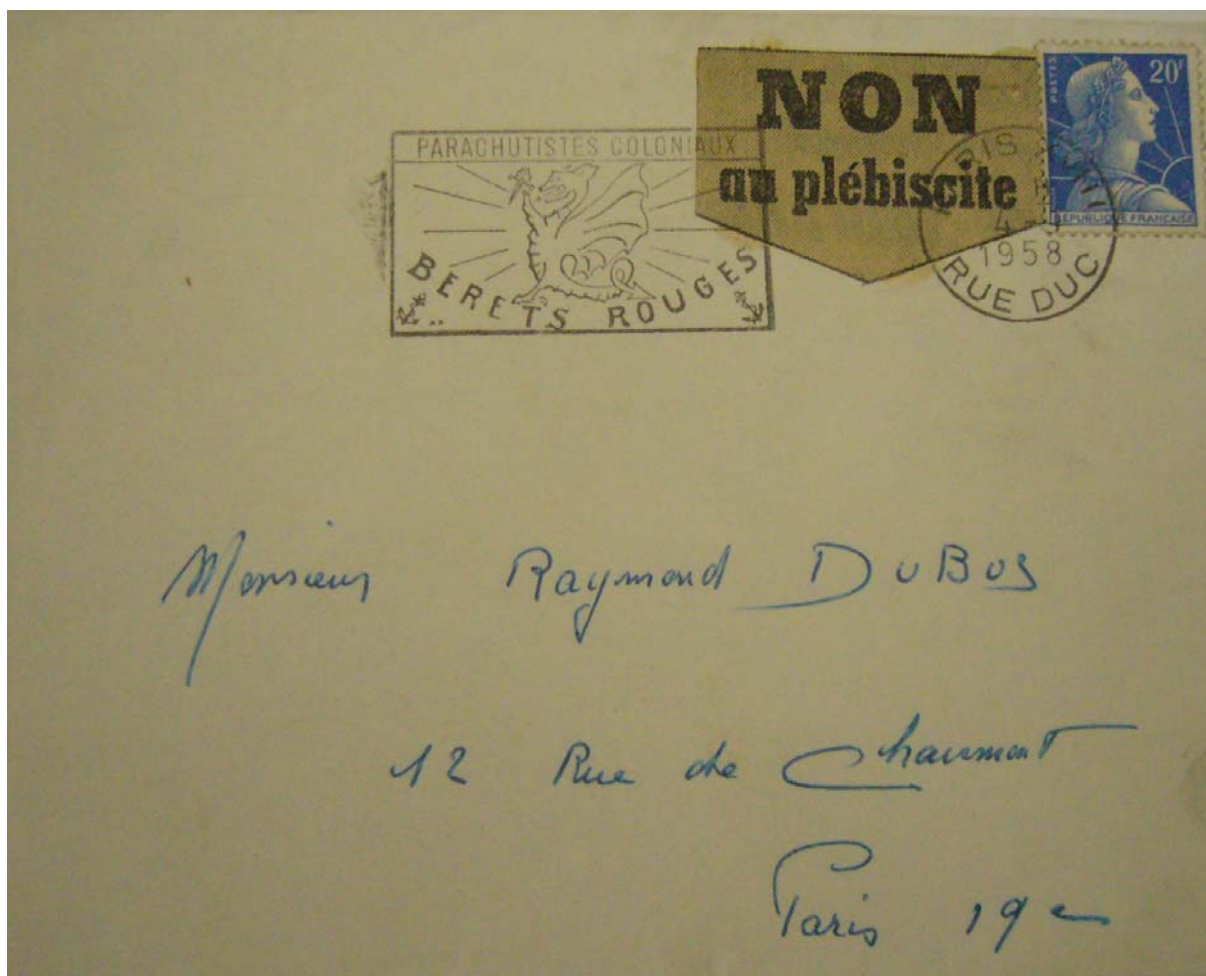 PARACHUTISTES COLONIAUX
BERETS ROUGES
NON
au plébiscite
20F
POSTES
REPUBLIQUE FRANÇAISE
1958
RUE DUC
Monsieur Raymond DuBos
12 Rue de Chaumont
Paris 19e